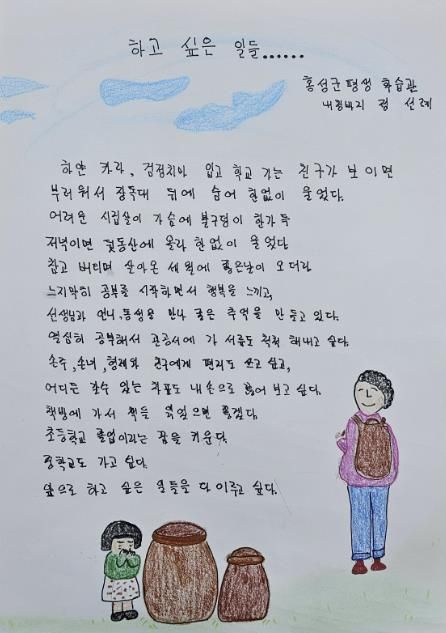 하고 싶은 일들......
홍성군 평생 학습관
내림바지 전 선례
하얀 카라, 검정치마 입고 학교 가는 친구가 보이면
부러워서 장독대 뒤에 숨어 한없이 울었다.
어려운 시집살이 가슴에 불구덩이 한가득
저녁이면 뒷동산에 올라 한없이 울었다
참고 버티며 살아온 세월에 좋은날이 오더라
느지막히 공부를 시작하면서 행복을 느끼고,
선생님과 언니, 동생을 만나 좋은 추억을 만들고 있다.
열심히 공부해서 관공서에 가 서류도 척척 해내고 싶다.
손주, 손녀, 형제와 친구에게 편지도 쓰고 싶고,
어디든 갈수 있는 차표도 내 손으로 끊어 보고 싶다.
책방에 가서 책을 읽으면 좋겠다.
초등학교 졸업이라는 꿈을 키운다.
중학교도 가고 싶다.
앞으로 하고 싶은 일들을 다 이루고 싶다.